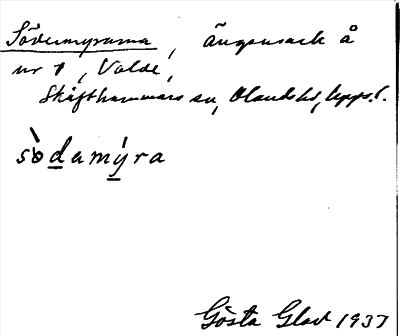 Södermyrarna, Ängsmark å
nr 1, Valde,
Skäfthammars sn, Olands hd, Upps. l.
sòdamýra
Gösta Glad 1937